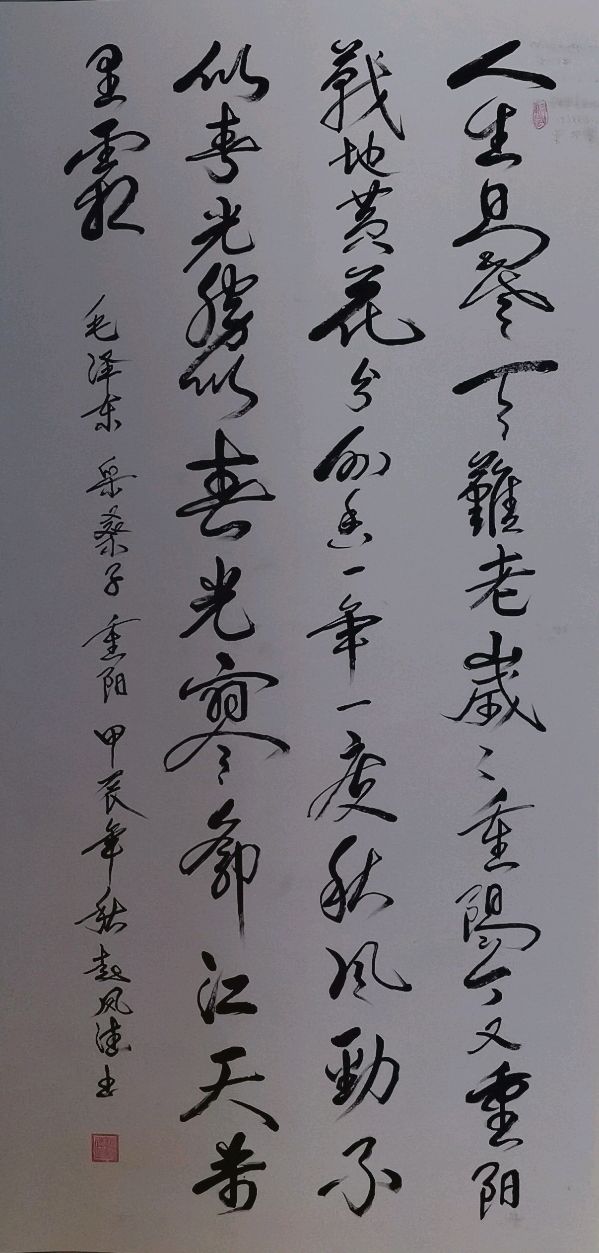 人生易老天難老歲〻重陽今又重阳
戰地黄花分外香一年一度秋风勁不
似春光勝似春光寥廓江天萬
里霜 毛泽东 采桑子 重阳 甲辰年秋赵书